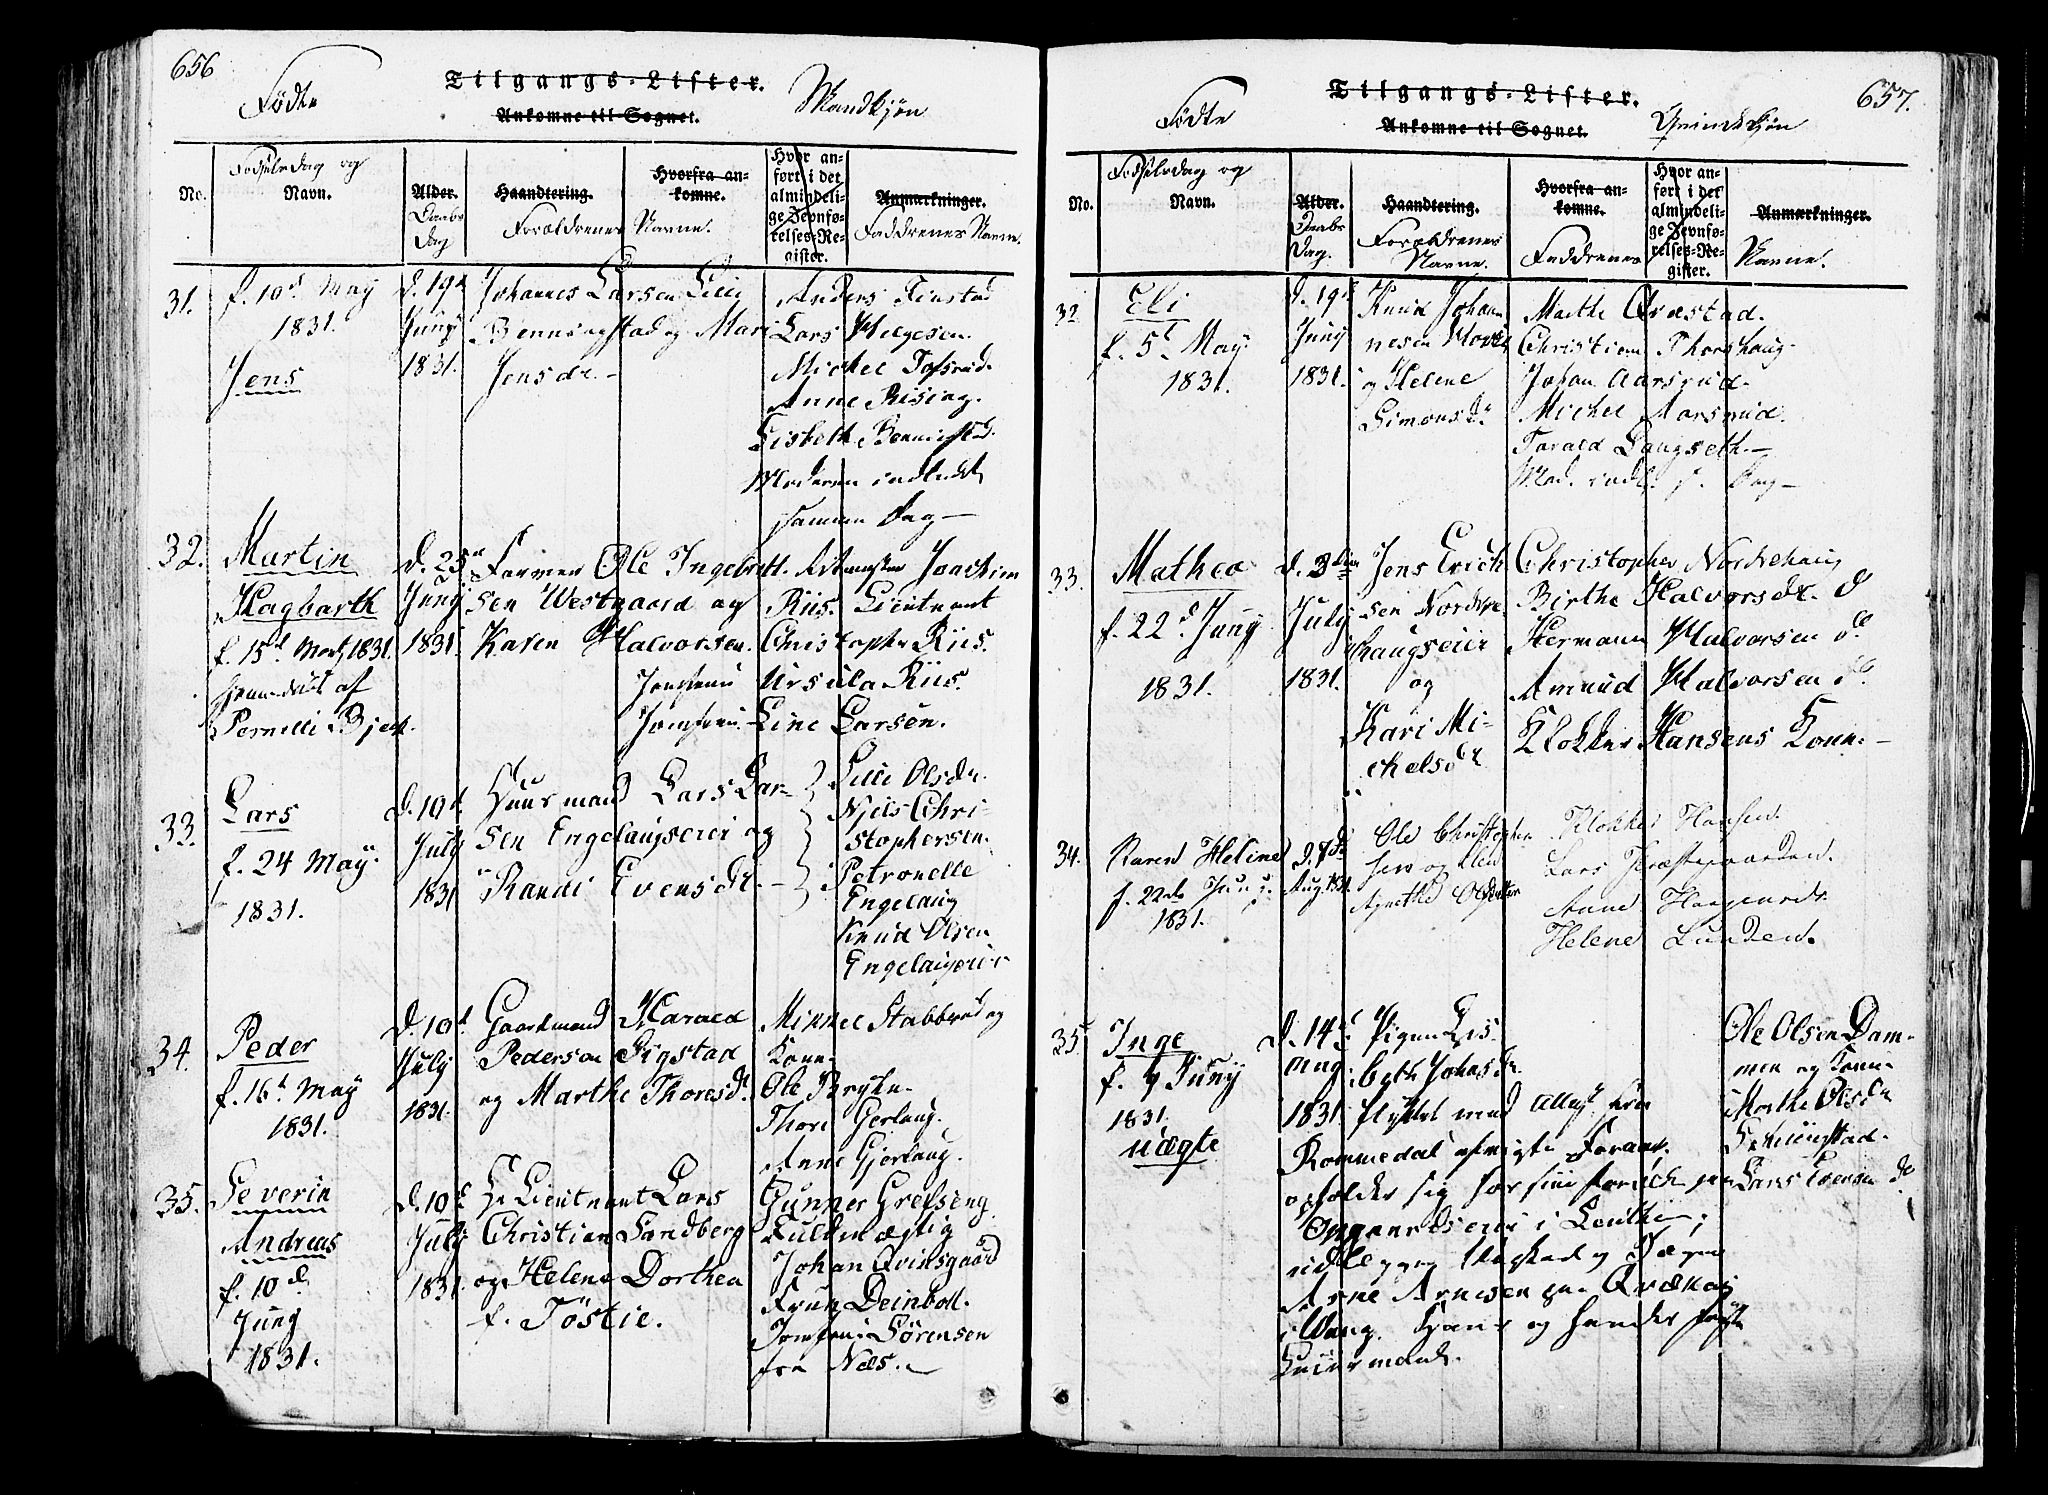 656
Fødte
Tilgangs-Lister.
Ankomne til Sognet.
Mandkjøn
No.
Fødselsdag og
Navn.
Alder.
Daabs
Dag
Haandtering.
Hvorfra an-
komne.
Forældrenes Navne.
Hvor an-
ført i det
almindeli-
ge Jevnfø-
relses-Re-
gister.
Anmærkninger.
Faddrenes Navne.
31.
f. 10d May
1831.
Jens
D. 19d
Juny
1831.
Johannes Larsen Lille
Benningstad og Mari
Jensdr.
Anders Finstad
Lars Helgesen.
Michel
Anne Rising.
Lisbeth Benningstad.
Moderen indledt
samme Dag
32.
Martin
Hagbarth
f. 15d Marty 1831.
hjemmedøbt af
Pernille
D. 25
Juny
1831
Farver Ole Ingebret-
sen Westgaard og
Karen Halvorsen.
Ritmester Joachim
Riis. Lieutnant
Christopher Riis.
Jomfrue Ursula Riis.
Jomfrue Line Larsen.
33.
Lars
f. 24 May.
1831.
D. 10d
July
1831
Huusmand Lars Lar-
sen Engelaugseier og
Randi Evensdr.
Lille Olsdr.
Njels Chri-
stophersen.
Petronelle
Engelaug
Knud Olsen
Engelaugseier
34.
Peder
f. 16d May
1831.
D. 10d
July
1831.
Gaardmand Harald
Pedersen Sigstad
og Marthe Thoresdr.
Mikkel Stabberud og
Kone
Ole Bryhn.
Thore Gjerlaug.
Anne Gjerlaug.
35.
Severin
Andreas
f. 10d
Juny
1831.
D. 10d
July
1831.
Hr Lieutnant Lars
Christian Sandberg
og Helene Dorthea
f. Töstie.
Gunner Grefseng
Fuldmægtig
Johan Qvinsgaard
Frue Deinboll.
Jomfrue Sörensen
fra Næs.
657.
Fødte
Tilgangs-Lister.
Ankomne til Sognet.
Qvindekjøn
No.
Fødselsdag og
Navn.
Alder.
Daabs
Dag.
Haandtering.
Forældrenes
Navne.
Hvorfra an-
komne.
Faddrenes
Hvor an-
ført i det
almindeli-
ge Jevnfø-
relses-Re-
gister.
Anmærkninger.
Navne.
32
Eli
f. 5d May.
1831.
D. 19d
Juny
1831.
Knud Johan
nesen
og Helene
Simonsdr
Marthe Qvestad.
Christian Thorshaug.
Johan Aarsrud.
Michel Aarsrud.
Tarald Langseth.
Mod. indl. s. Dag
33.
Mathea
f. 22d Juny
1831.
D. 3die
July
1831.
Jens Erich
sen Nordre
haugseier
og
Kari Mi-
chelsdr
Christopher Nordrehaug
Birthe Halvorsdr. do
Hermann Halvorsen do.
Amund Halvorsen do.
Klokker Hansens Kone.
34.
Karen Heline
f. 22de Juny.
1831.
D. 7de
Aug. 1831.
Ole Christophe
sen og
Agnethe Olsdatter
Klokker Hansen.
Lars Præstegaarden.
Anne
Helene Lunden.
35
Inge
f. 7 Juny
1831.
uægte
D. 14d
Aug
1831
Pigen Lis-
beth Johansdr.
flyttet med Attest fra
Rommedal afvigte Foraar
opholder sig hos sine Forældre paa
i Leuthen;
udlegger til Barnefader
Arne Arnesen paa
i Wang. Hans og hendes første
Leiermaal.
Ole Olsen Dam-
men og Kone
Marthe Olsdr
Lars Evensen do